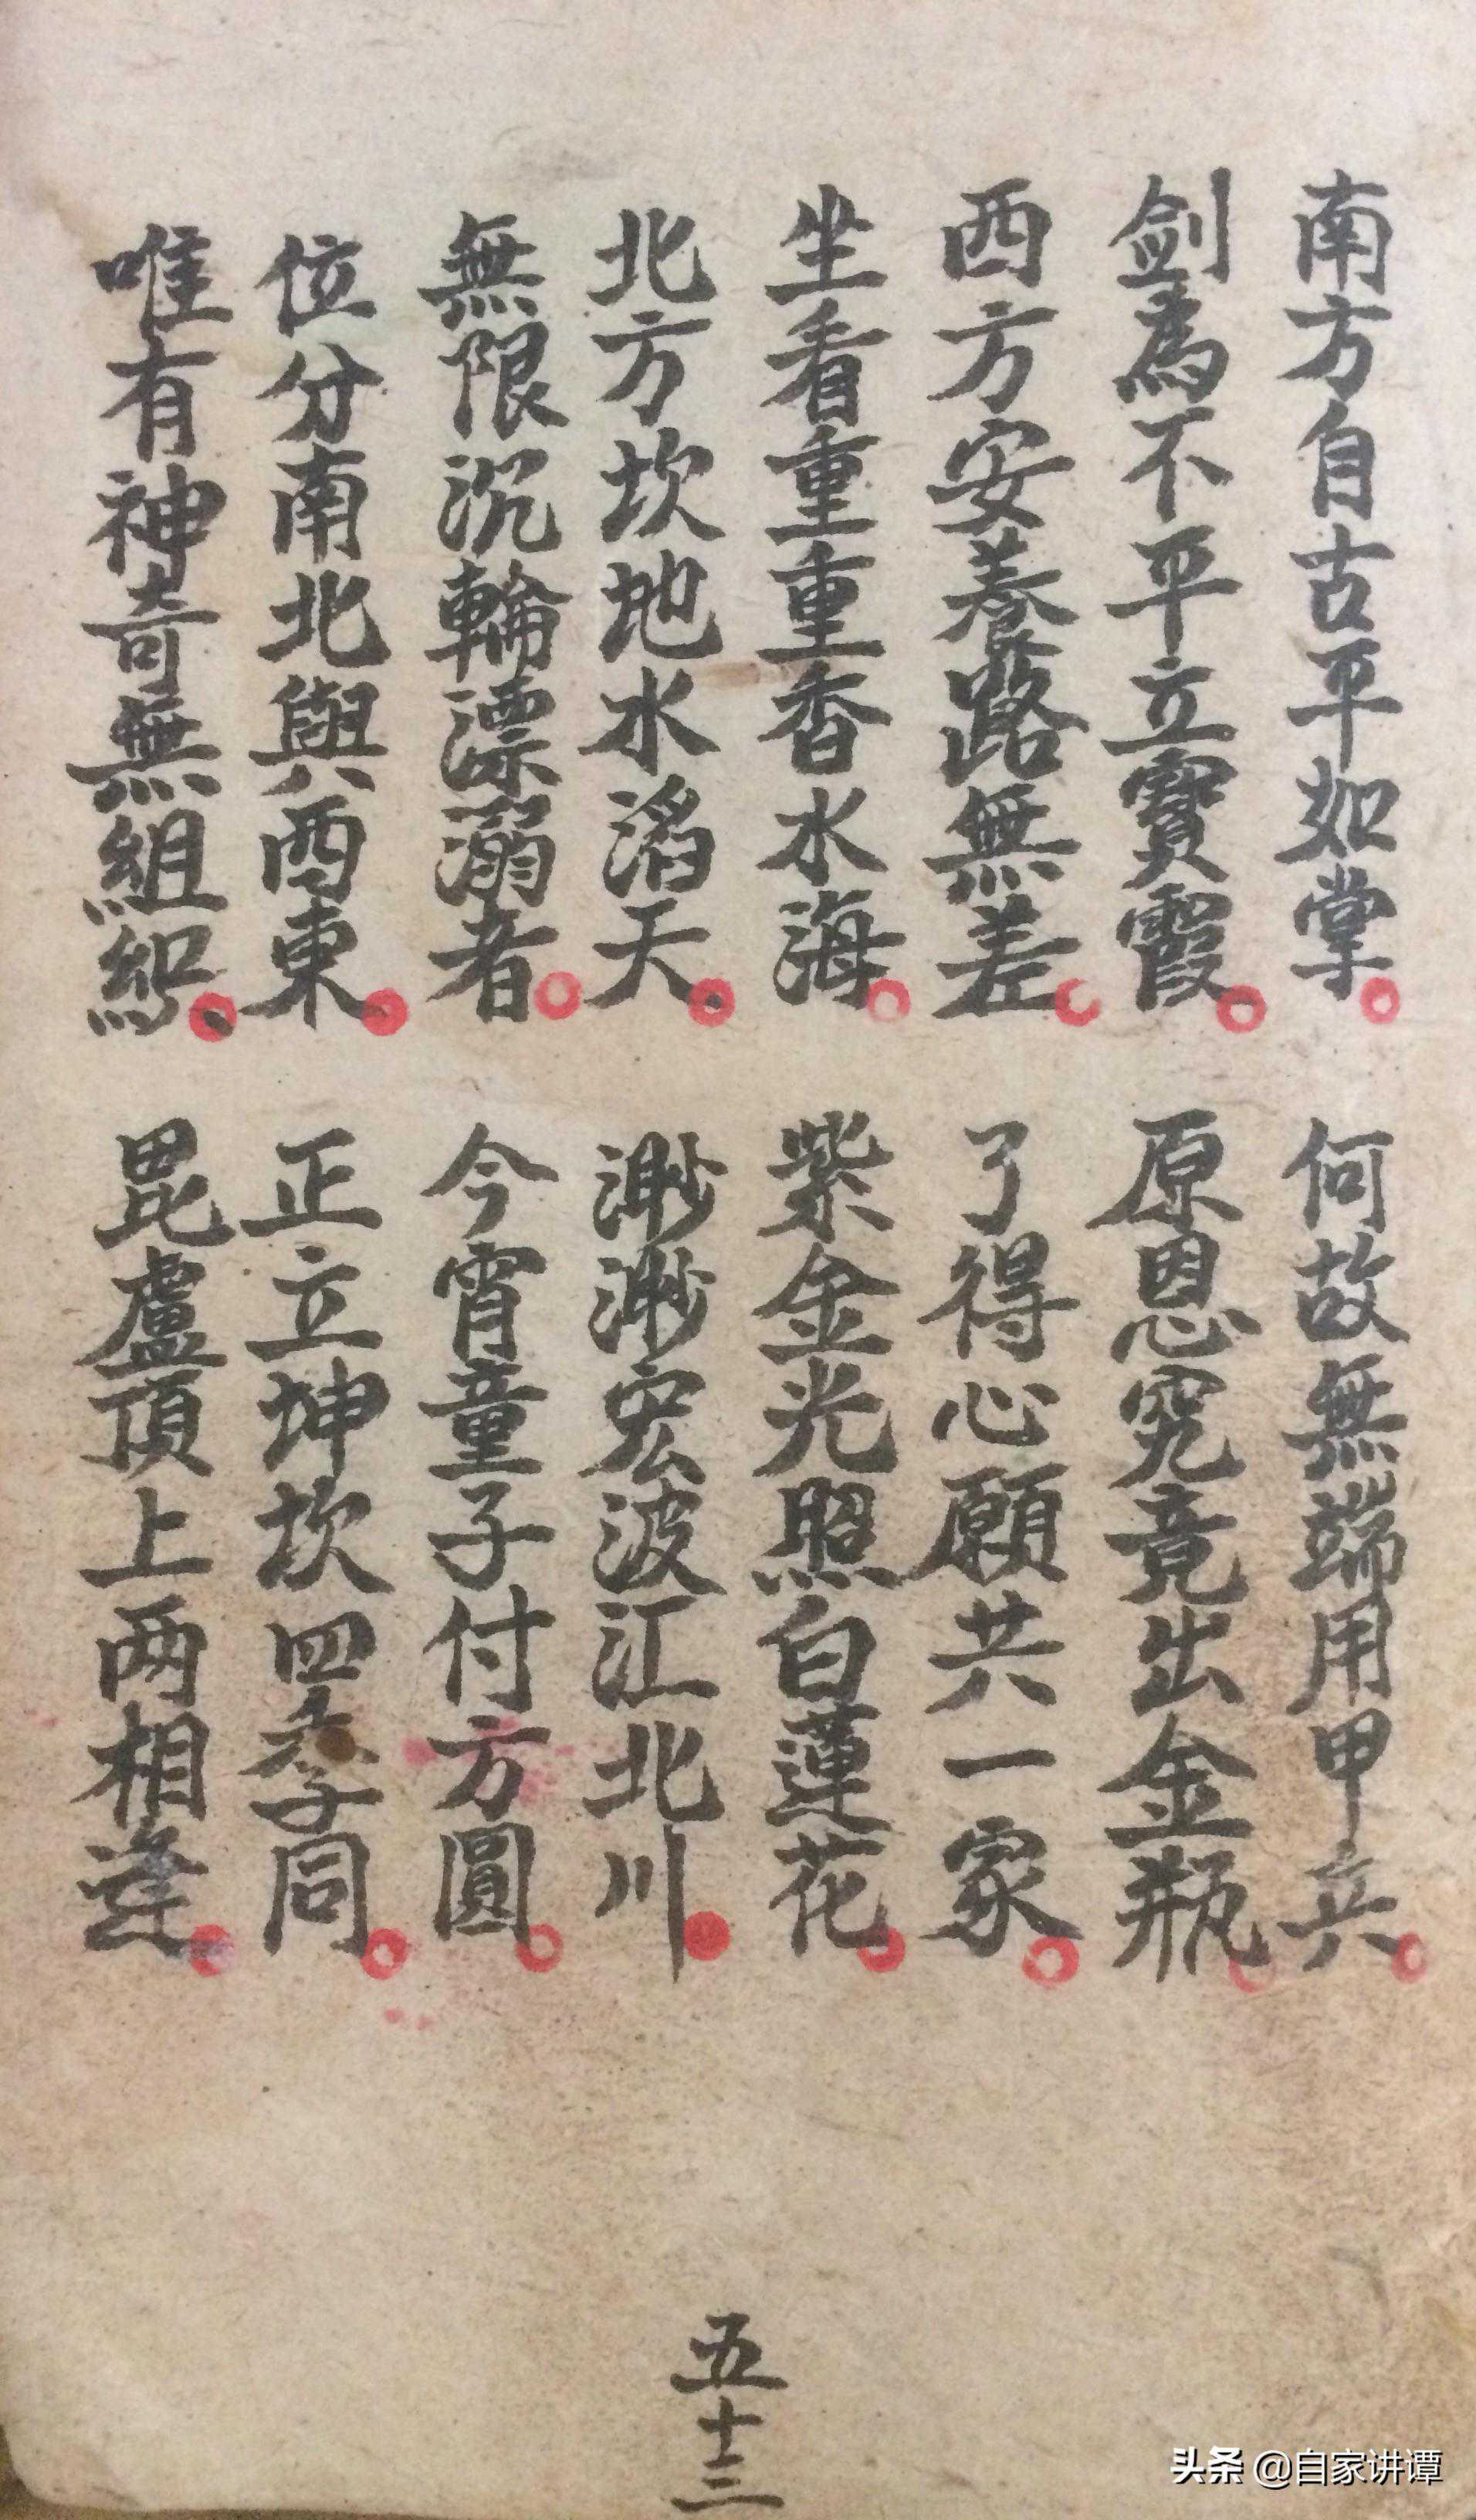 南方自古平如掌 何故無端用甲兵
劍為不平立寶霞 原恩究竟出金瓶
西方安養路無差 了得心願共一家
坐看重重香水海 紫金光照白蓮花
北方坎地水滔天 渺渺宏波江北川
無限沉輪漂溺者 今宵童子付方圓
位分南北與西東 正立坤坎四季同
唯有神奇無組織 毘盧頂上两相逢
五十三
头条 @自家讲谭